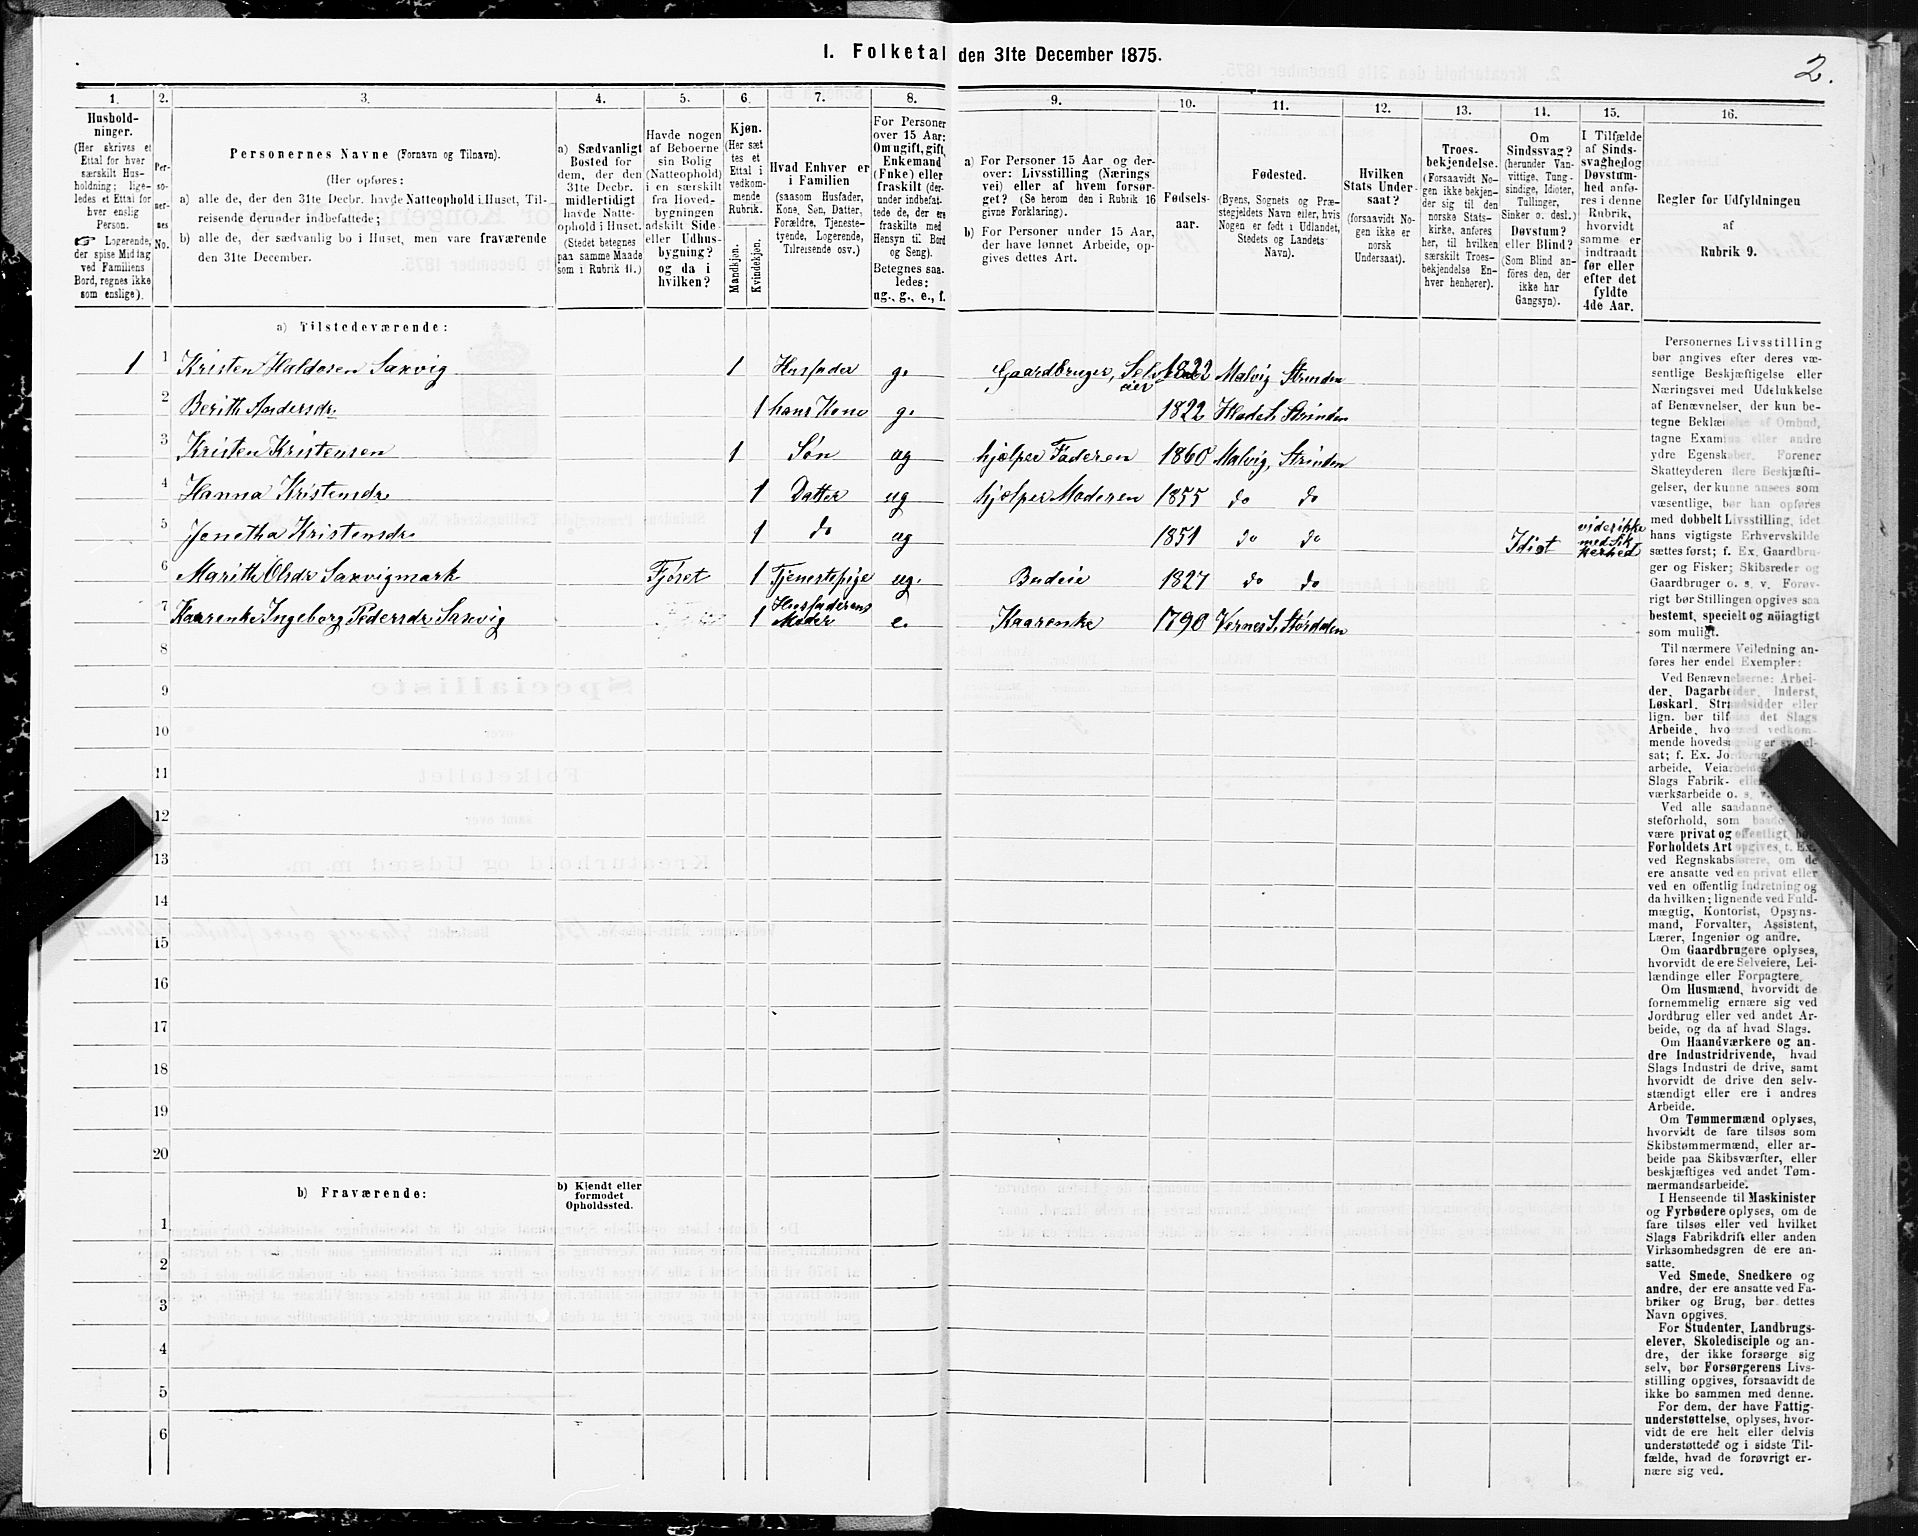 1. Folketal den 31te December 1875.
2.
1. 2. 3. 4. 5. 6. 7. 8. 9. 10. 11. 12. 13. 14. 15. 16.
Hushold-
ninger.
(Her skrives et
Ettal for hver
særskilt Hus-
holdning; lige-
ledes et Ettal for
hver enslig
Person.
☞ Logerende,
der spise Middag
ved Familiens
Bord, regnes ikke
som enslige).
Per-
so-
ner-
nes
No.
Personernes Navne (Fornavn og Tilnavn).
(Her opføres:
a) alle de, der den 31te Decbr. havde Natteophold i Huset, Til-
reisende derunder indbefattede;
b) alle de, der sædvanlig bo i Huset, men vare fraværende
den 31te December.
a) Sædvanligt
Bosted for
dem, der den
31te Decbr.
midlertidigt
havde Natte-
ophold i Huset.
(Stedet betegnes
paa samme Maade
som i Rubrik 11.)
Havde nogen
af Beboerne
sin Bolig
(Natteophold)
i en særskilt
fra Hoved-
bygningen
adskilt Side-
eller Udhus-
bygning?
og da i
hvilken?
Kjøn.
(Her sæt-
tes et
Ettal i
vedkom-
mende
Rubrik.
Mandkjøn.
Kvindekjøn.
Hvad Enhver er
i Familien
(saasom Husfader,
Kone, Søn, Datter,
Forældre, Tjeneste-
tyende, Logerende,
Tilreisende osv.)
For Personer
over 15 Aar:
Om ugift, gift,
Enkemand
(Enke) eller
fraskilt (der-
under indbefat-
tede de, der ere
fraskilte med
Hensyn til Bord
og Seng).
Betegnes saa-
ledes:
ug., g., e., f.
a) For Personer 15 Aar og der-
over: Livsstilling (Nærings-
vei) eller af hvem forsør-
get? (Se herom den i Rubrik 16
givne Forklaring).
b) For Personer under 15 Aar,
der have lønnet Arbeide, op-
gives dettes Art.
Fødsels-
aar.
Fødested.
(Byens, Sognets og Præ-
stegjeldets Navn eller, hvis
Nogen er født i Udlandet,
Stedets og Landets
Navn).
Hvilken
Stats Under-
saat?
(forsaavidt No-
gen ikke er
norsk
Undersaat).
Troes-
bekjendelse.
(Forsaavidt No-
gen ikke bekjen-
der sig til den
norske Stats-
kirke, anføres
her, til hvilken
særskilt Troes-
bekjendelse En-
hver henhører).
Om
Sindssvag?
(herunder Van-
vittige, Tung-
sindige, Idioter,
Tullinger,
Sinker o. desl.)
Døvstum?
eller Blind?
(Som Blind an-
føres den, der
ikke har
Gangsyn).
I Tilfælde
af Sinds-
svaghed og
Døvstum-
hed anfø-
res i denne
Rubrik,
hvorvidt
samme er
indtraadt
før eller
efter det
fyldte
4de Aar.
Regler for Udfyldningen
af
Rubrik 9.
a) Tilstedeværende:
1 1 Kristen Haldosen Saxvig 1 Husfader g. Gaardbruger, Selveier 1822 Malvig Strinden
2 Berith Andersdr. 1 hans Kone g. 1822 Hladeh. Strinden
3 Kristen Kristensen 1 Søn ug hjælper Faderen 1860 Malvig, Strinden
4 Hanna Kristensdr. 1 Datter ug hjælper Moderen 1855 do do
5 Jonetha Kristensdr. 1 do ug 1851 do do Idiot vides ikke med Sikkerhed
6 Marith Olsdr Saxvigmark Fjøset 1 Tjenestepige ug. Budeie 1827 do do
7 Kaarenke Ingeborg Pedersdr. Saxvig 1 Husfaderens Moder e. Kaarenke 1790 Vernes S. Størdalen
8
9
10
11
12
13
14
15
16
17
18
19
20
b) Fraværende:
b) Kjendt eller
formodet
Opholdssted.
1
2
3
4
5
6
Personernes Livsstilling
bør angives efter deres væ-
sentlige Beskjæftigelse eller
Næringsvei med Udelukkelse
af Benævnelser, der kun be-
tegne Beklædelse af Ombud,
tagne Examina eller andre
ydre Egenskaber. Forener
Skatteyderen flere Beskjæfti-
gelser, der kunne ansees som
væsentlige, bør han opføres
med dobbelt Livsstilling, idet
hans vigtigste Erhvervskilde
sættes først; f. Ex. Gaardbru-
ger og Fisker; Skibsreder og
Gaardbruger o. s. v. Forøv-
rigt bør Stillingen opgives saa
bestemt, specielt og nøiagtigt
som muligt.
Til nærmere Veiledning an-
føres her endel Exempler:
Ved Benævnelserne: Arbei-
der, Dagarbeider, Inderst,
Løskarl, Strandsidder eller
lign. bør tilføies det Slags
Arbeide, hvormed vedkom-
mende hovedsagelig er syssel-
sat; f. Ex. Jordbrug,
arbeide, Veiarbeide,
Slags Fabrik- eller
værksarbeide o. s. v.
Ved alle saadanne
steforhold, som baade
være privat og offentligt, bør
Forholdets Art opgives, t. Ex.
ved Regnskabsførere, om de
ere ansatte ved en privat eller
ved en offentlig Indretning og
da hvilken; lignende ved Fuld-
mægtig, Kontorist, Opsyns-
mand, Forvalter, Assistent,
Lærer, Ingeniør og andre.
Om Gaardbrugere oplyses,
hvorvidt de ere Selveiere, Lei-
lændinge eller Forpagtere.
Om Husmænd, hvorvidt de
fornemmelig ernære sig ved
Jordbrug eller ved andet Ar-
beide, og da af hvad Slags.
Om Haandværkere og an-
dre Industridrivende, hvad
Slags Industri de drive, samt
hvorvidt de drive den selv-
stændigt eller ere i andres
Arbeide.
Om Tømmermænd oplyses,
hvorvidt de fare tilsøs som
Skibstømmermænd, eller ar-
beide paa Skibsværfter, eller
beskjæftiges ved andet Tøm-
mermandsarbeide.
I Henseende til Maskinister
og Fyrbødere oplyses, om de
fare tilsøs eller ved hvilket
Slags Fabrikdrift eller anden
Virksomhedsgren de ere an-
satte.
Ved Smede, Snedkere og
andre, der ere ansatte ved Fa-
briker og Brug, bør dettes
Navn opgives.
For Studenter, Landbrugs-
elever, Skoledisciple og an-
dre, der ikke forsørge sig
selv, bør Forsørgerens Livs-
stilling opgives, forsaavidt de
ikke bo sammen med denne.
For dem, der have Fattig-
understøttelse, oplyses, hvor-
vidt de ere helt eller delvis
understøttede og i sidste Til-
fælde, hvad de forøvrigt er-
nære sig ved.